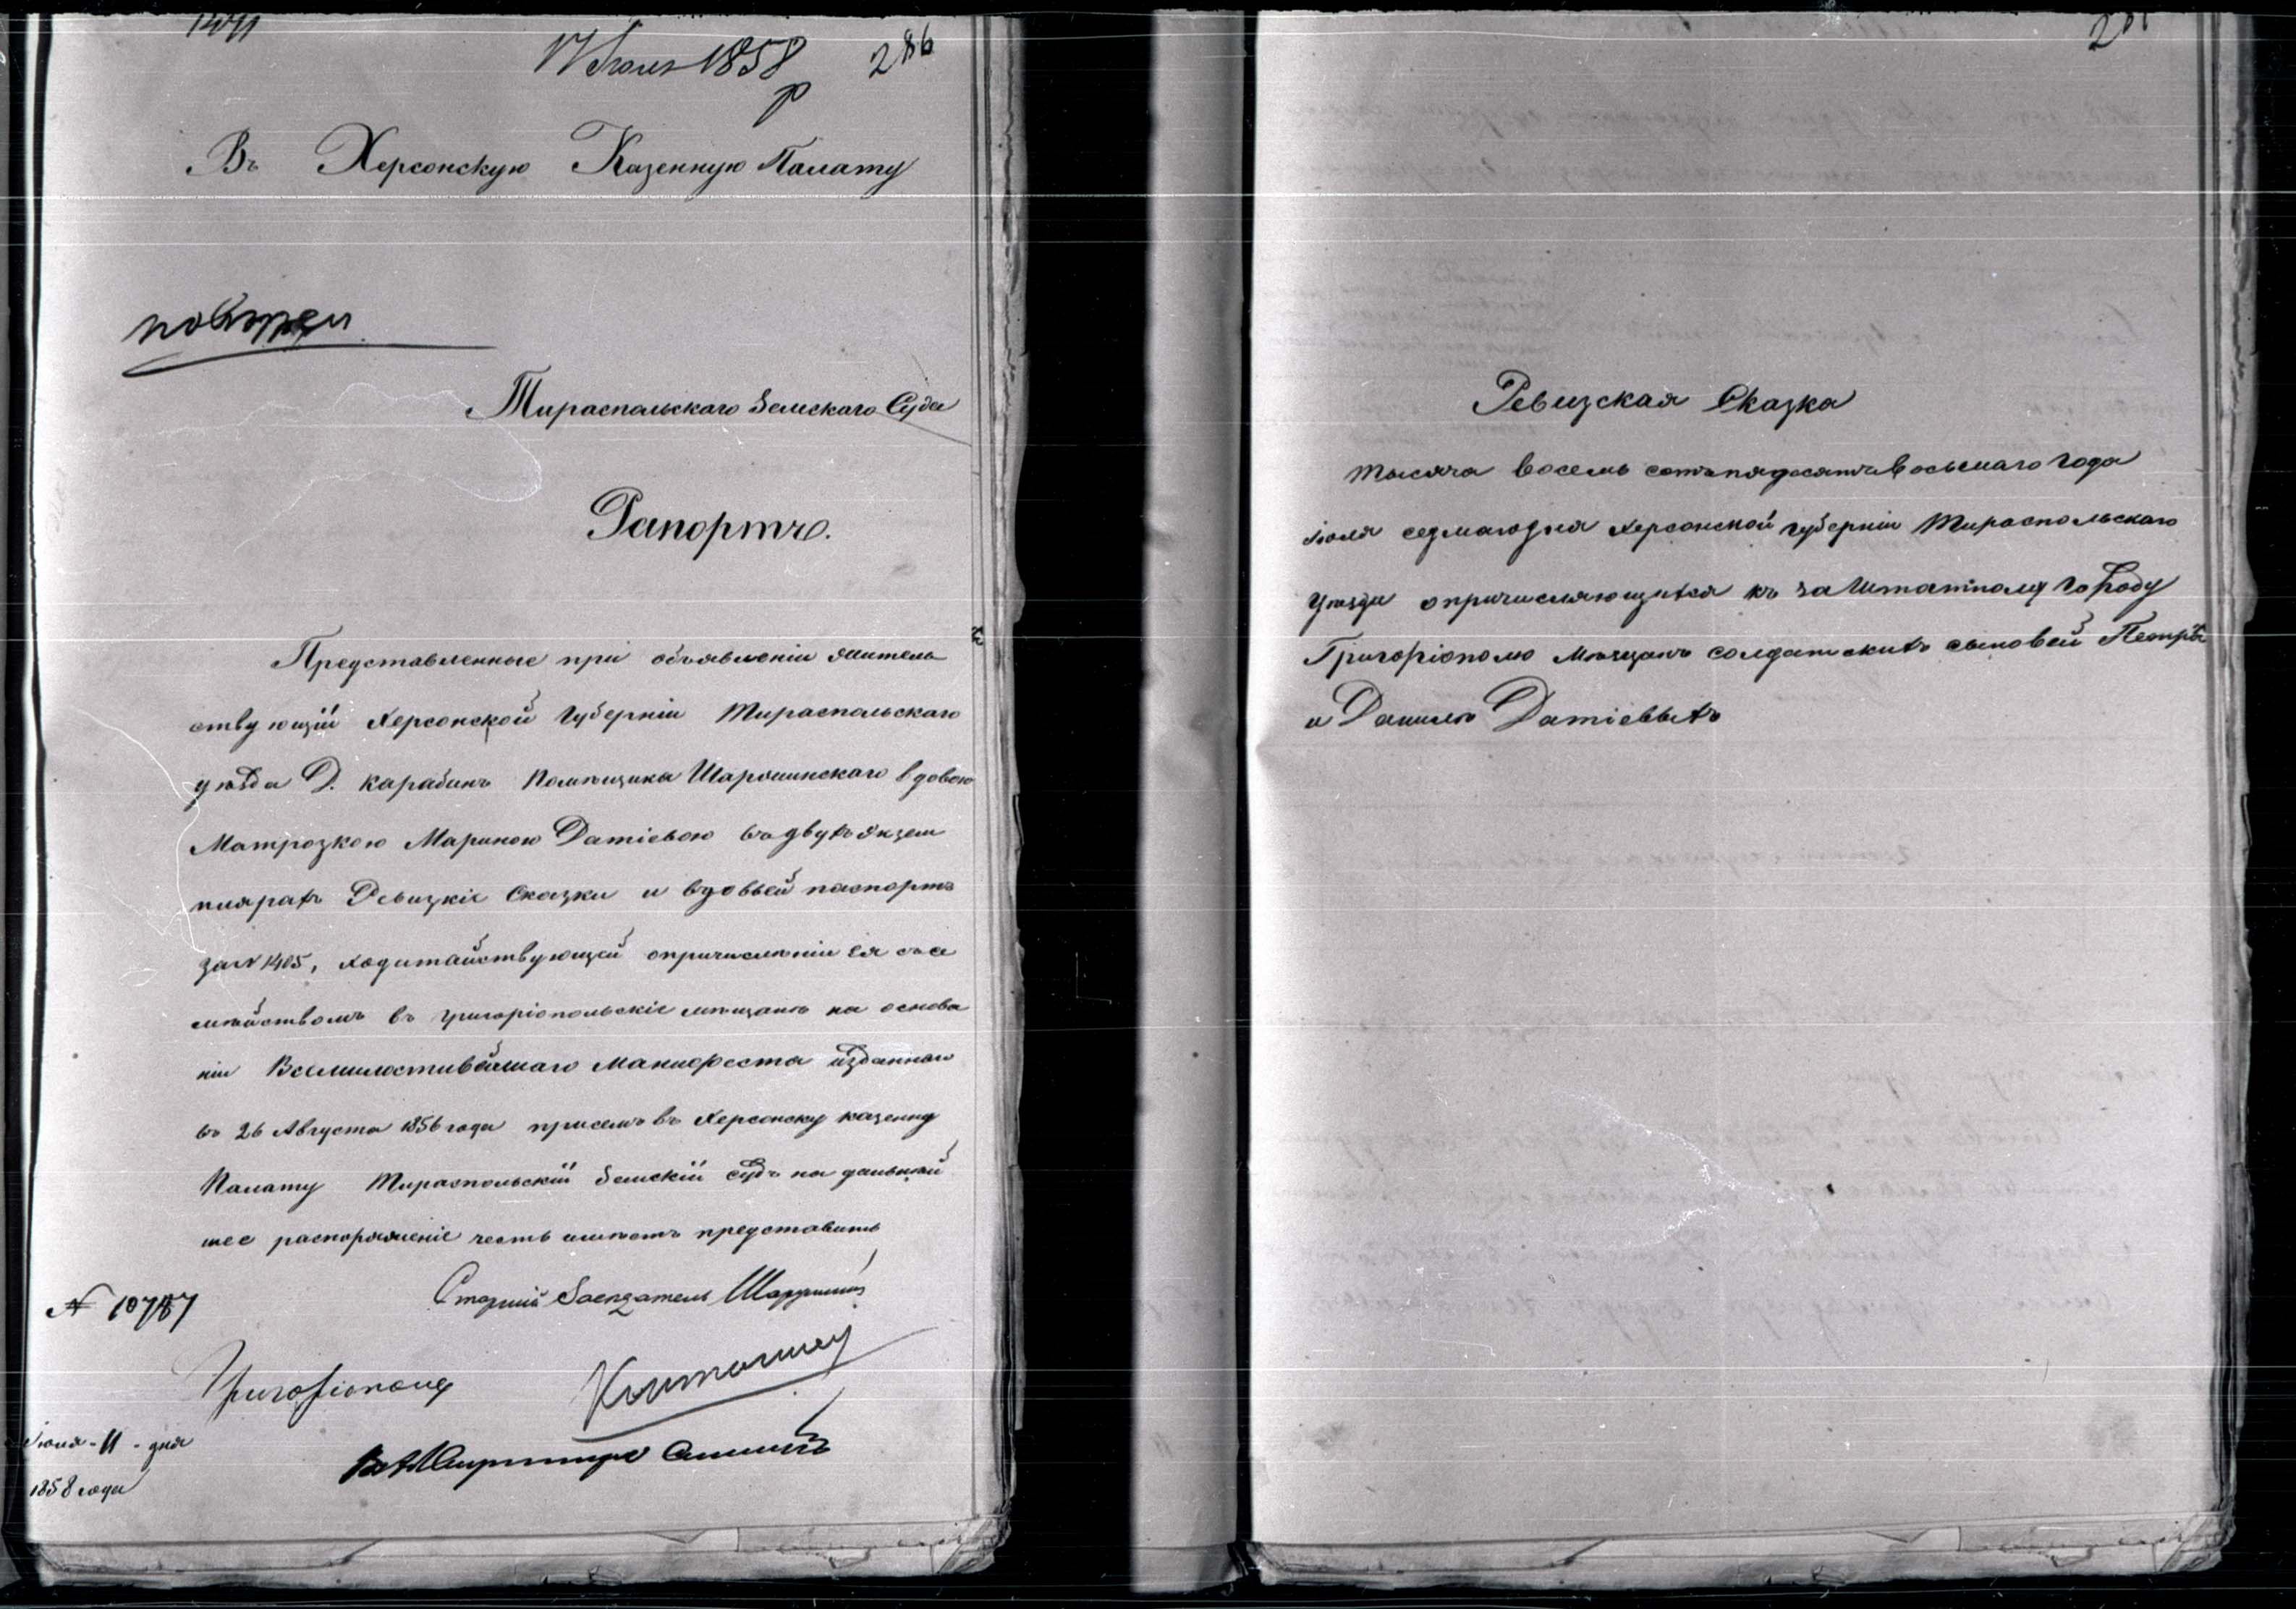 17 Июля 1858
286
Въ Херсонскую Казенную Палату
Тираспольскаго Земскаго Суда
Рапортъ.
Представленные при объявленіи житель
ствующій Херсонской Губерніи Тираспольскаго
уѣзда Д. Карабинъ Помѣщика вдовою
Матрозкою Мариною Datiевою въ двухъ экзем
плярахъ Ревизкіе Сказки и вдовьей паспортъ
за N 1405, ходатайствующей опричисленіи Ея съ се
мѣйствомъ въ григоріопольскіе мѣщане на основа
ніи Всемилостивѣйшаго Манифеста изданнаго
въ 26 Августа 1856 года присемъ въ Херсонску казенну
Палату Тираспольскій Земскій Судъ на дальнѣй
шее распоряженіе честь имѣетъ представить
Старшій Засѣдатель
N 10787
Григоріополь
Июля - 11 - дня
1858 года
Ревизская Сказка
тысяча восемь сотъ пядесятъ восьмаго года
іюля седмаго дня Херсонской губерніи Тираспольскаго
уѣзда опричисляющихся къ заштатному городу
Григоріополю Мѣщанъ солдатскихъ сыновей Петра
и Данила Датіевыхъ